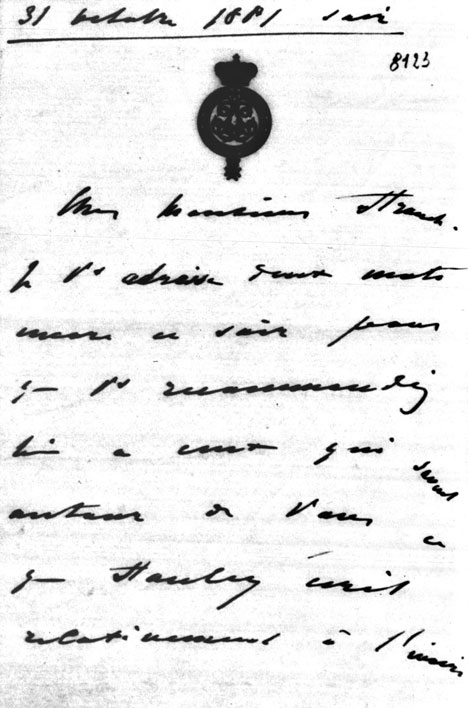 31 octobre 1881 soir
8123
Cher Monsieur Strauch.
Je Vs adresse deux mots
encore ce soir pour
q Vs recommandiez
bien a ceux qui sont
autour de Vous ce
q Stanley écrit
relativement à l'ivoire